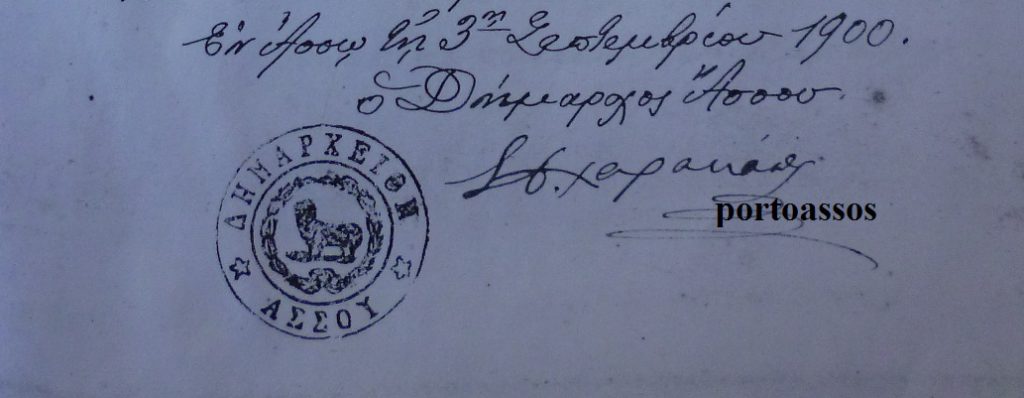 Ἐν Ἄσσῳ τῇ 3ῃ Σεπτεμβρίου 1900.
ὁ Δήμαρχος Ἄσσου
portoassos
ΔΗΜΑΡΧΕΙΟΝ
ΑΣΣΟΥ